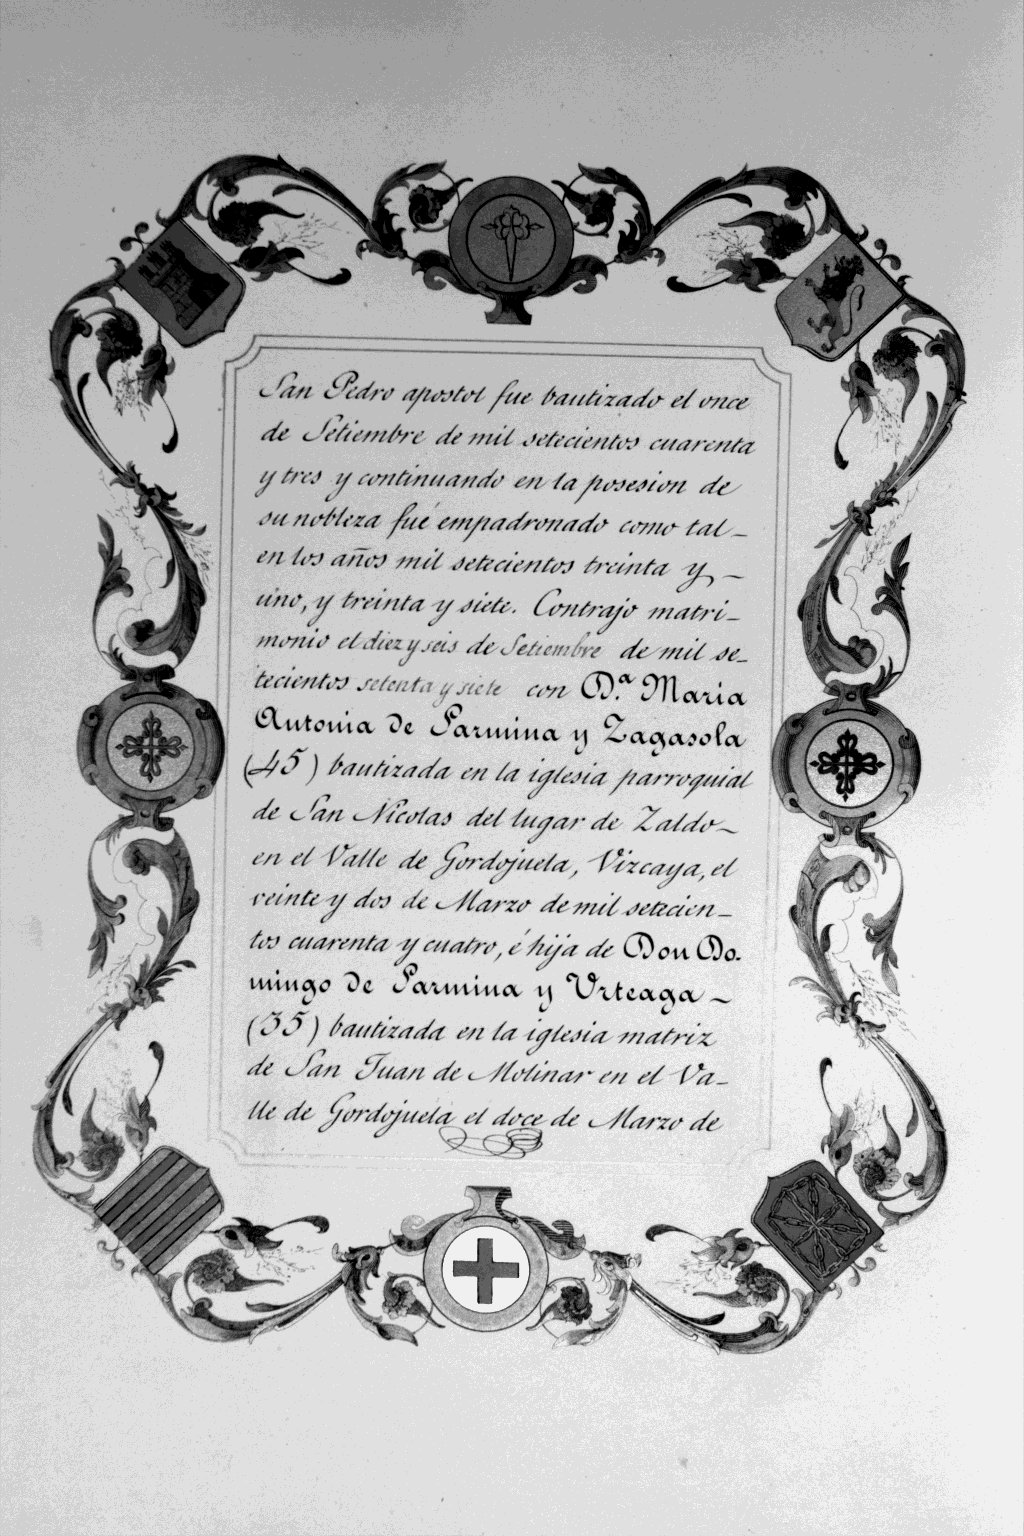 San Pedro apostol fue bautizado el once
de Setiembre de mil setecientos cuarenta
y tres y continuando en la posesion de
su nobleza fué empadronado como tal _
en los años mil setecientos treinta y _
uno, y treinta y siete. Contrajo matri_
monio el diez y seis de Setiembre de mil se_
tecientos setenta y siete con D.ª Maria
Antonia de Parmina y Zagasola
(45) bautizada en la iglesia parroquial
de San Nicolas del lugar de Zaldo_
en el Valle de Gordojuela, Vizcaya, el
veinte y dos de Marzo de mil setecien_
tos cuarenta y cuatro, é hija de Don Do.
mingo de Parmina y Urteaga _
(35) bautizada en la iglesia matriz
de San Juan de Molinar en el Va_
lle de Gordojuela el doce de Marzo de